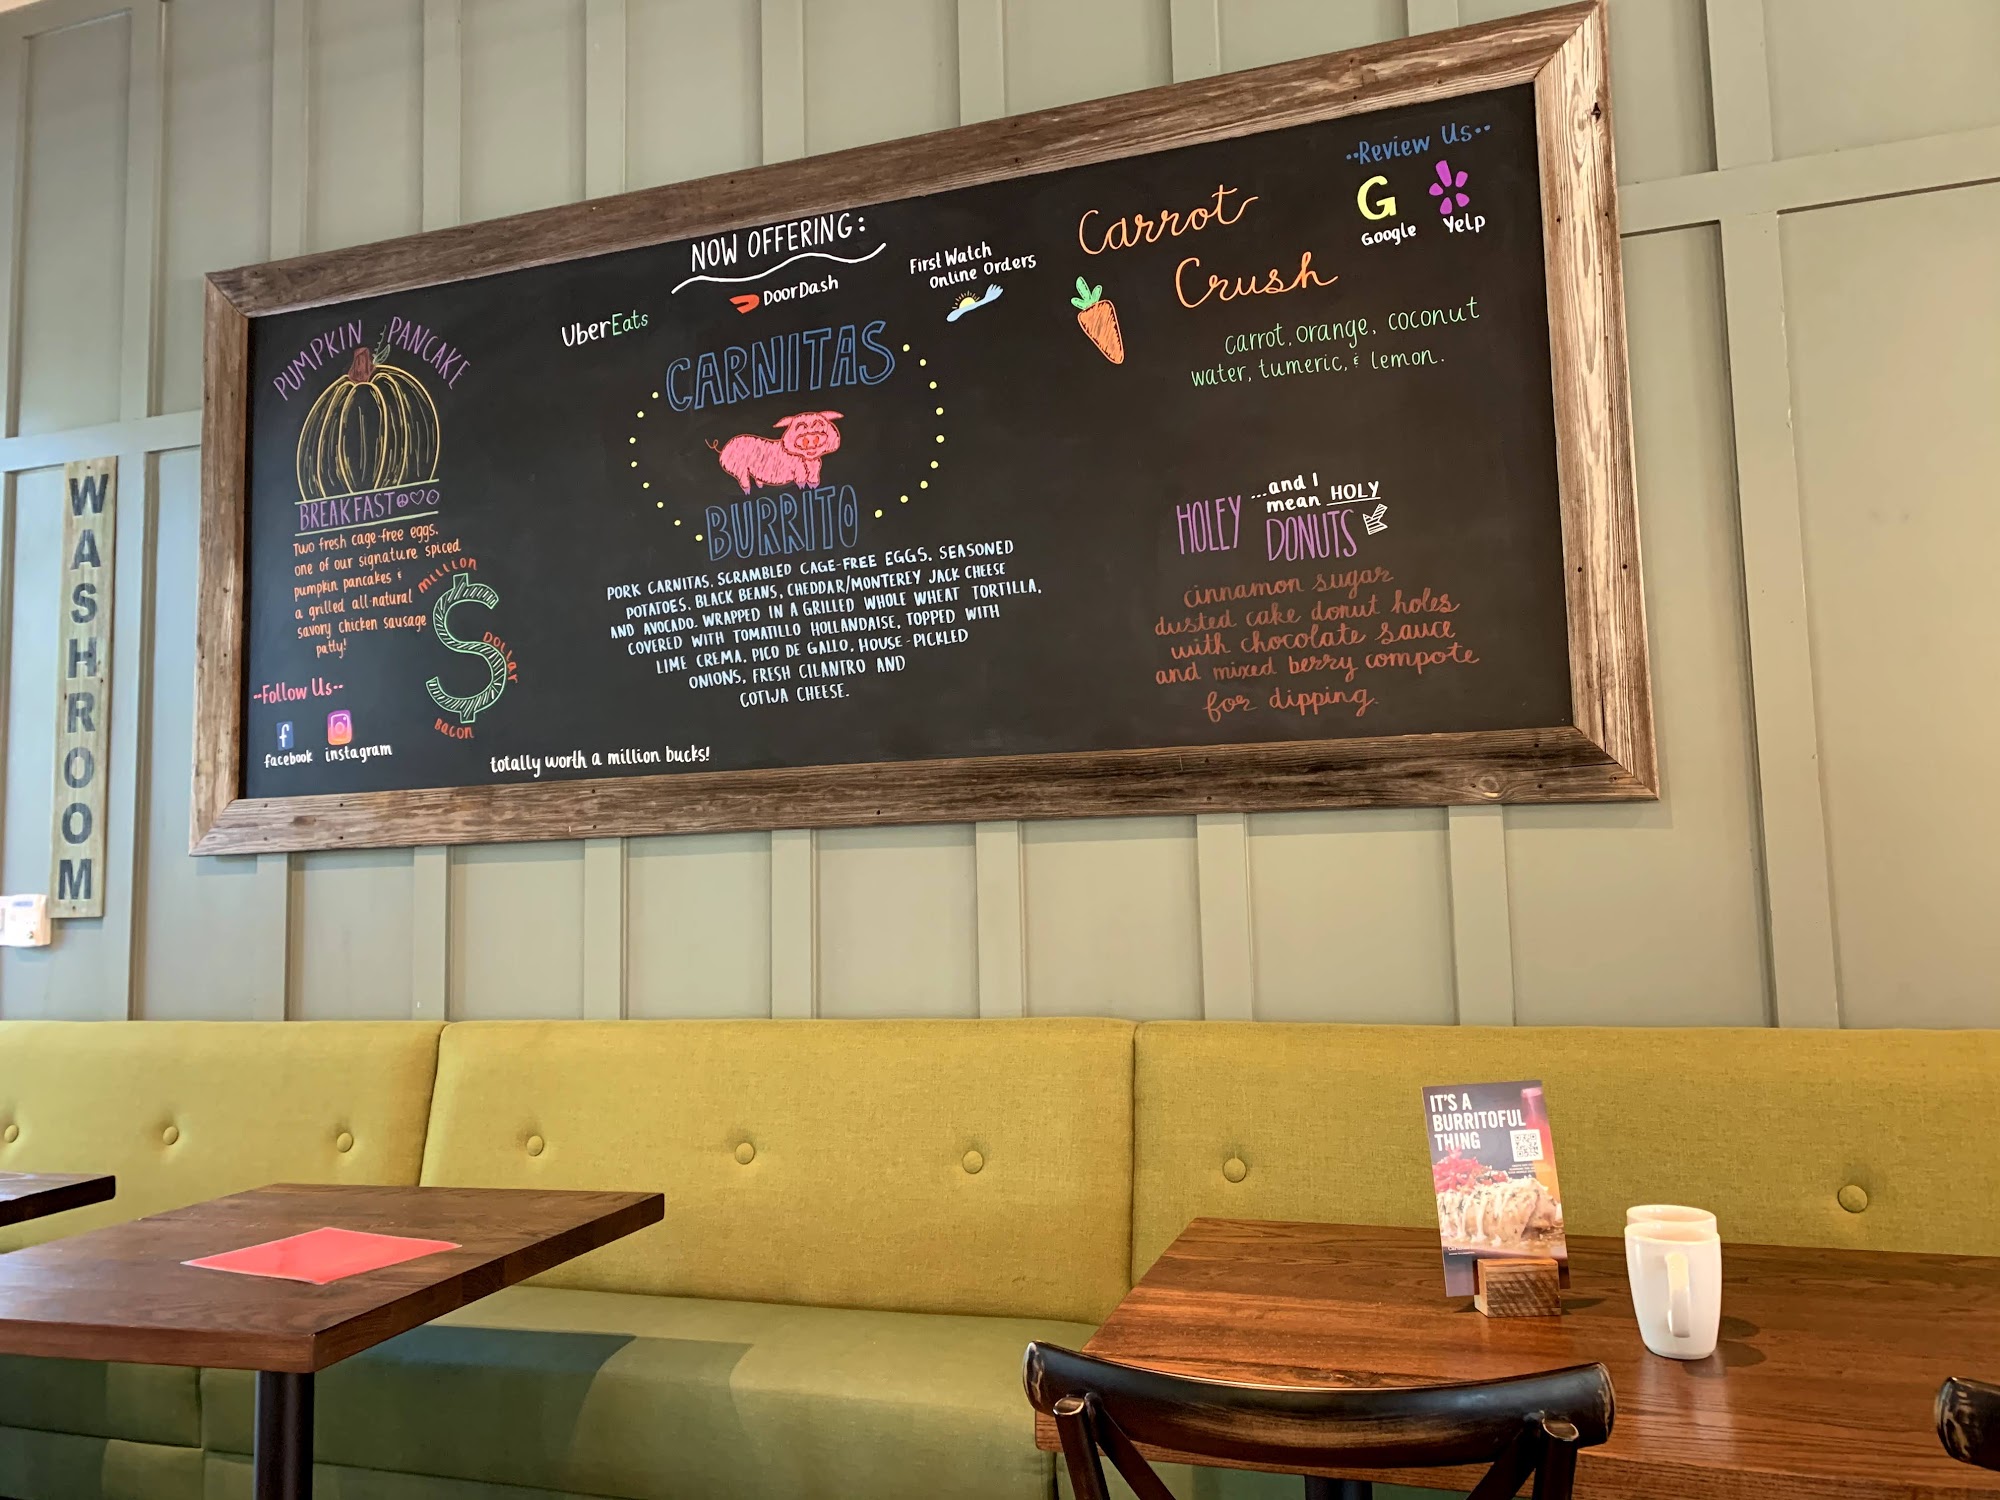 WASHROOM
PUMPKIN PANCAKE
BREAKFAST
Two fresh cage-free eggs,
one of our signature spiced
pumpkin pancakes &
a grilled all-natural
savory chicken sausage
patty!
Million
$
Dollar
Bacon
totally worth a million bucks!
--Follow Us--
f
facebook
instagram
NOW OFFERING:
UberEats
DoorDash
First Watch
Online Orders
CARNITAS
BURRITO
PORK CARNITAS, SCRAMBLED CAGE-FREE EGGS, SEASONED
POTATOES, BLACK BEANS, CHEDDAR/MONTEREY JACK CHEESE
AND AVOCADO. WRAPPED IN A GRILLED WHOLE WHEAT TORTILLA,
COVERED WITH TOMATILLO HOLLANDAISE, TOPPED WITH
LIME CREMA, PICO DE GALLO, HOUSE-PICKLED
ONIONS, FRESH CILANTRO AND
COTIJA CHEESE.
Carrot
Crush
carrot, orange, coconut
water, tumeric, & lemon.
··Review Us··
G
Google
Yelp
HOLEY
...and I
mean HOLY
DONUTS
cinnamon sugar
dusted cake donut holes
with chocolate sauce
and mixed berry compote
for dipping.
IT'S A
BURRITOFUL
THING